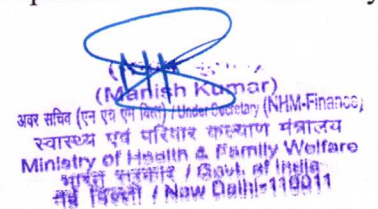 (Manish Kumar)
अवर सचिव (एन एच एम वित्त) / Under Secretary (NHM-Finance)
स्वास्थ्य एवं परिवार कल्याण मंत्रालय
Ministry of Health & Family Welfare
भारत सरकार / Govt. of India
नई दिल्ली / New Delhi-110011